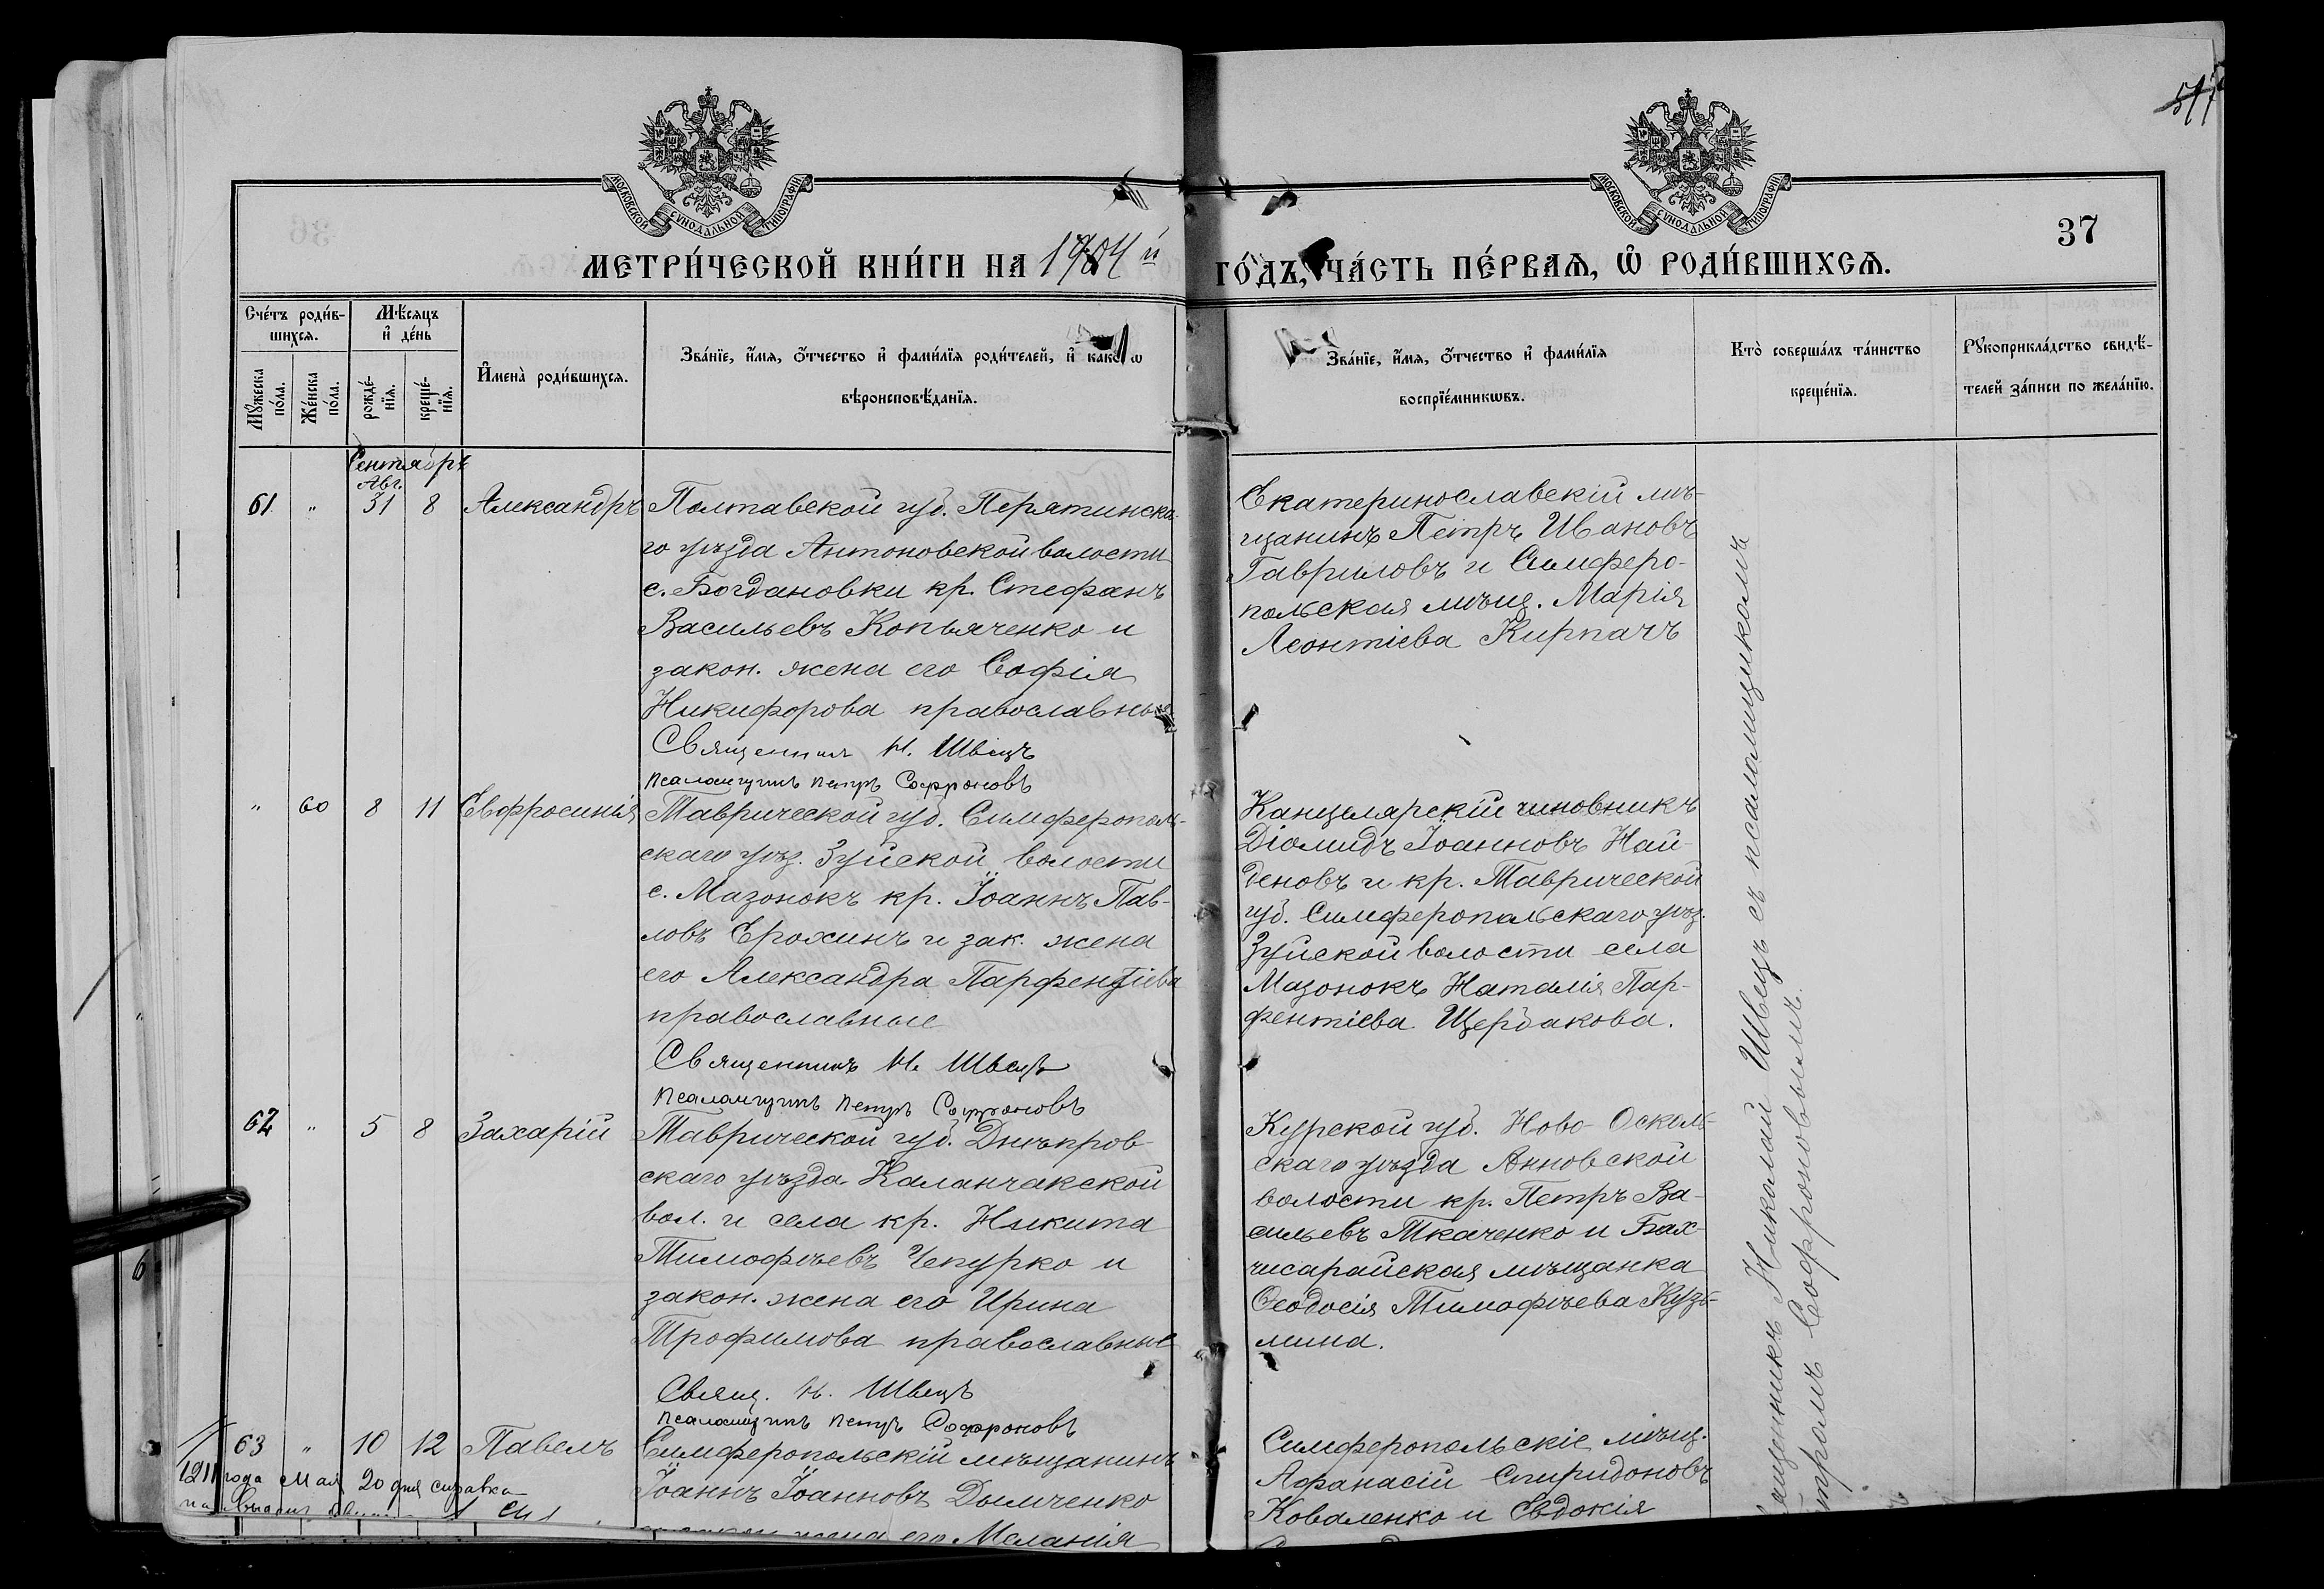 517
МОСКОВСКОЙ СѴНОДАЛЬНОЙ ТИПОГРАФІИ
МОСКОВСКОЙ СѴНОДАЛЬНОЙ ТИПОГРАФІИ
37
МЕТРИ́ЧЕСКОЙ КНИ́ГИ НА 1904 й ГО́ДЪ, ЧА́СТЬ ПЕ́РВАѦ, Ѡ҆ РОДИ́ВШИХСѦ.
Сче́тъ роди́в-
шихсѧ.
Мѣ́сѧцъ
и҆ де́нь
Мꙋ́жеска
по́ла.
Же́нска
по́ла.
рожде́-
нїѧ.
креще́-
нїѧ.
И҆мена̀ роди́вшихсѧ.
Зва́нїе, и҆́мѧ, ѻ҆́тчество и҆ фами́лїѧ роди́телей, и҆ како́гѡ
вѣроисповѣ́данїѧ.
Зва́нїе, и҆́мѧ, ѻ҆́тчество и҆ фами́лїѧ
воспрїе́мникѡвъ.
Кто̀ соверша́лъ та́инство
креще́нїѧ.
Рꙋкоприкла́дство свидѣ́-
телей за́писи по жела́нїю.
Сентябрь
Авг.
61 " 31 8 Александръ
Полтавской губ. Перятинска-
го уѣзда Антоновской волости
с. Богдановки кр. Стефанъ
Васильевъ Копьяченко и
закон. жена его Софія
Никифорова православные
Священник Н. Швецъ
Псаломщикъ Петръ Софроновъ
Екатеринославскій мѣ-
щанинъ Петръ Ивановъ
Гавриловъ и Симферо-
польская мѣщ. Марія
Леонтіева Кирпачъ
" 60 8 11 Евфросинія
Таврической губ. Симферополь-
скаго уѣз. Зуйской волости
с. Мазонокъ кр. Іоаннъ Пав-
ловъ Ерохинъ и зак. жена
его Александра Парфентіева
православные
Священникъ Н. Швецъ
Псаломщикъ Петръ Софроновъ
Канцелярскій чиновникъ
Діомидъ Іоанновъ Най-
деновъ и кр. Таврической
губ. Симферопольскаго уѣз.
Зуйской волости села
Мазонокъ Наталія Пар-
фентіева Щербакова.
62 " 5 8 Захарій
Таврической губ. Днѣпров-
скаго уѣзда Каланчакской
вол. и села кр. Никита
Тимофѣевъ Чепурко и
закон. жена его Ирина
Трофимова православные
Свящ. Н. Швецъ
Псаломщикъ Петръ Софроновъ
Курской губ. Ново-Осколь-
скаго уѣзда Анновской
волости кр. Петръ Ва-
сильевъ Ткаченко и Бах-
чисарайская мѣщанка
Ѳеодосія Тимофѣева Кузь-
мина.
63 " 10 12 Павелъ
Симферопольскій мѣщанинъ
Іоаннъ Іоанновъ Дымченко
жена его Меланія
Симферопольскіе мѣщ.
Афанасій Спиридоновъ
Коваленко и Евдокія
1911 года Мая 20 дня справка
Священникъ Николай Швецъ съ псаломщикомъ
Петромъ Софроновымъ.
6